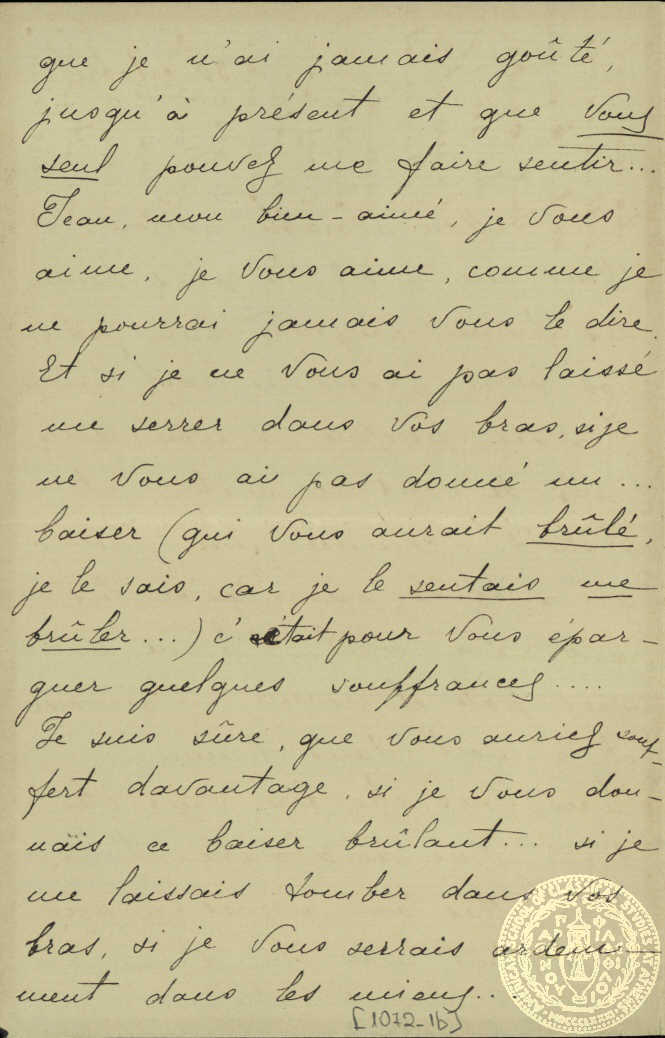 que je n'ai jamais goûté,
jusqu'à présent et que vous
seul pouvez me faire sentir...
Jean, mon bien-aimé, je vous
aime, je vous aime, comme je
ne pourrai jamais vous le dire.
Et si je ne vous ai pas laissé
me serrer dans vos bras, si je
ne vous ai pas donné un...
baiser (qui vous aurait brûlé,
je le sais, car je le sentais me
brûler...) c'était pour vous épar-
guer quelques souffrances....
Je suis sûre, que vous auriez souf-
fert davantage, si je vous don-
nais ce baiser brûlant... si je
me laissais tomber dans vos
bras, si je vous serrais ardem-
ment dans les miens...
[1072-1b]
AMERICAN SCHOOL OF CLASSICAL STUDIES AT ATHENS